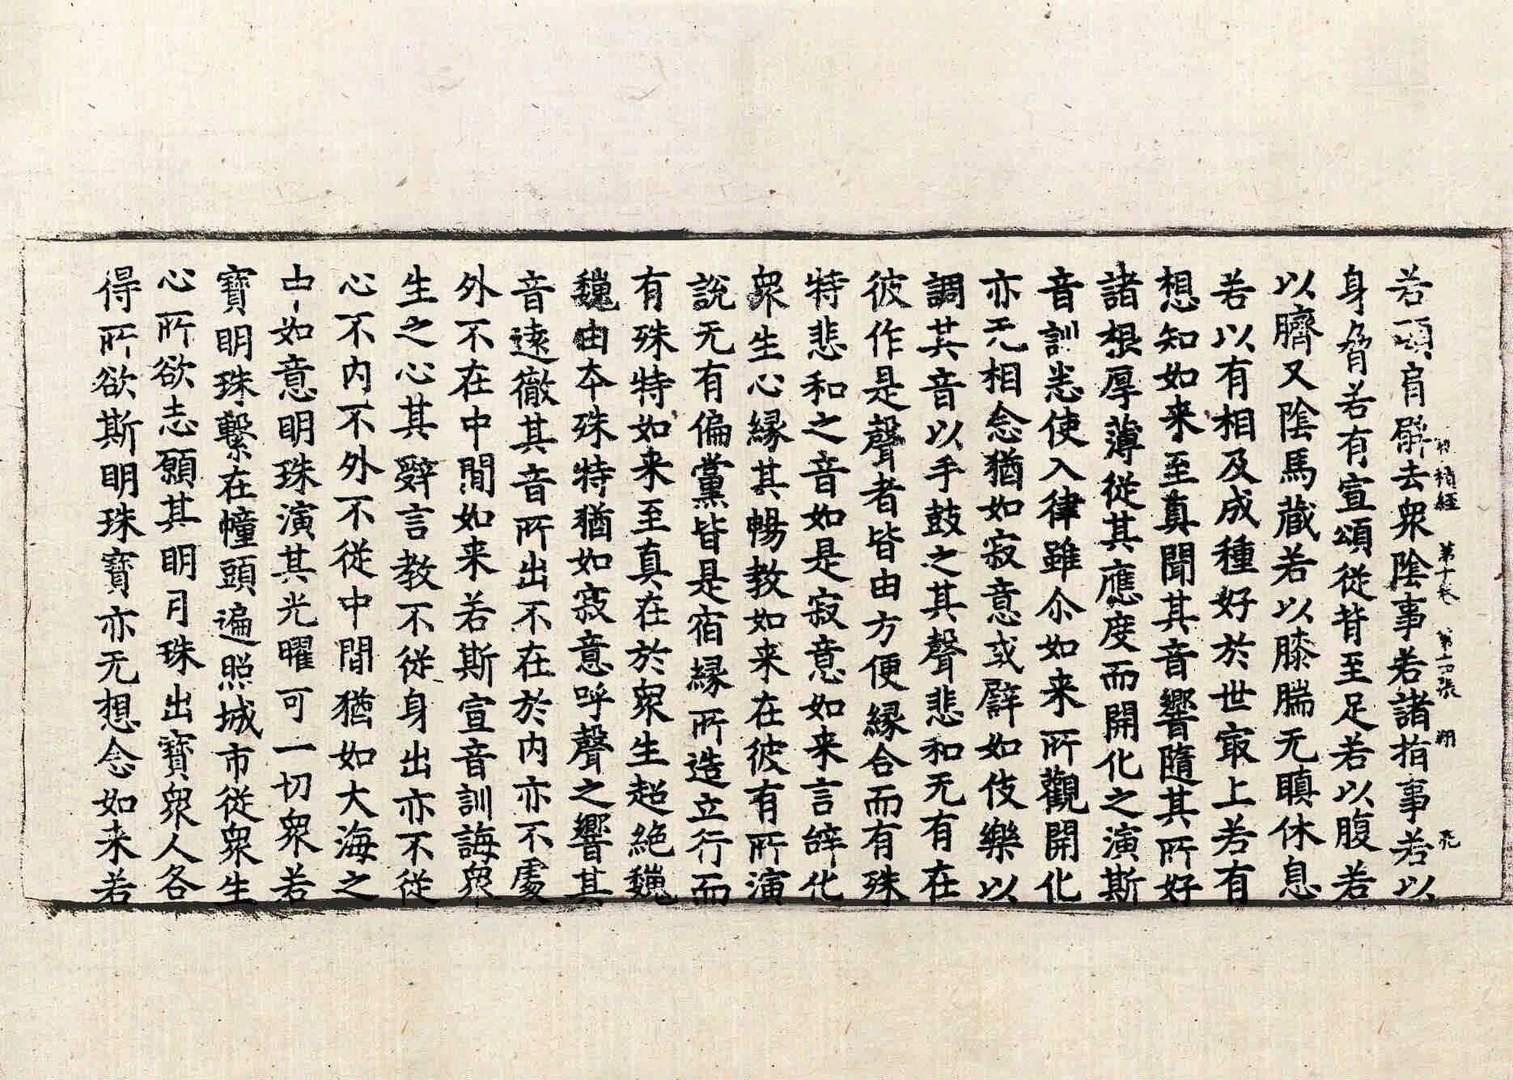 積經 第十卷 第十四張 翔
若項肩臂去衆陰事若諸指事若以
身脅若有宣頌從背至足若以腹若
以臍又陰馬藏若以膝腨无瞋休息
若以有相及成種好於世㝡上若有
想知如来至真聞其音響隨其所好
諸根厚薄從其應度而開化之演斯
音訓悉使入律雖尒如来所觀開化
亦无相念猶如寂意或譬如伎樂以
調其音以手鼓之其聲悲和无有在
彼作是聲者皆由方便縁合而有殊
特悲和之音如是寂意如来言辝化
衆生心縁其暢教如来在彼有所演
說无有偏黨皆是宿縁所造立行而
有殊特如来至真在於衆生超絶巍
巍由本殊特猶如寂意呼聲之響其
音遠徹其音所出不在於内亦不處
外不在中閒如来若斯宣音訓誨衆
生之心其辭言教不從身出亦不從
心不内不外不從中閒猶如大海之
中如意明珠演其光曜可一切衆若
寶明珠繫在幢頭遍照城市從衆生
心所欲志願其明月珠出寶衆人各
得所欲斯明珠寶亦无想念如来若